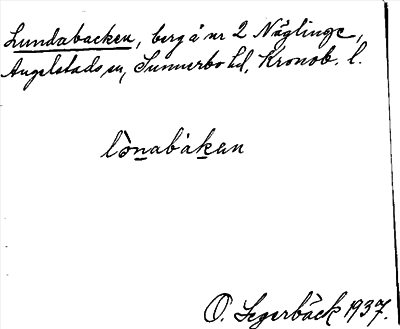 Lundabacken, berg å nr 2 Näglinge,
Angelstads sn, Sunnerbo hd, Kronob. l.
lònabákan
O. Segerbäck 1937.